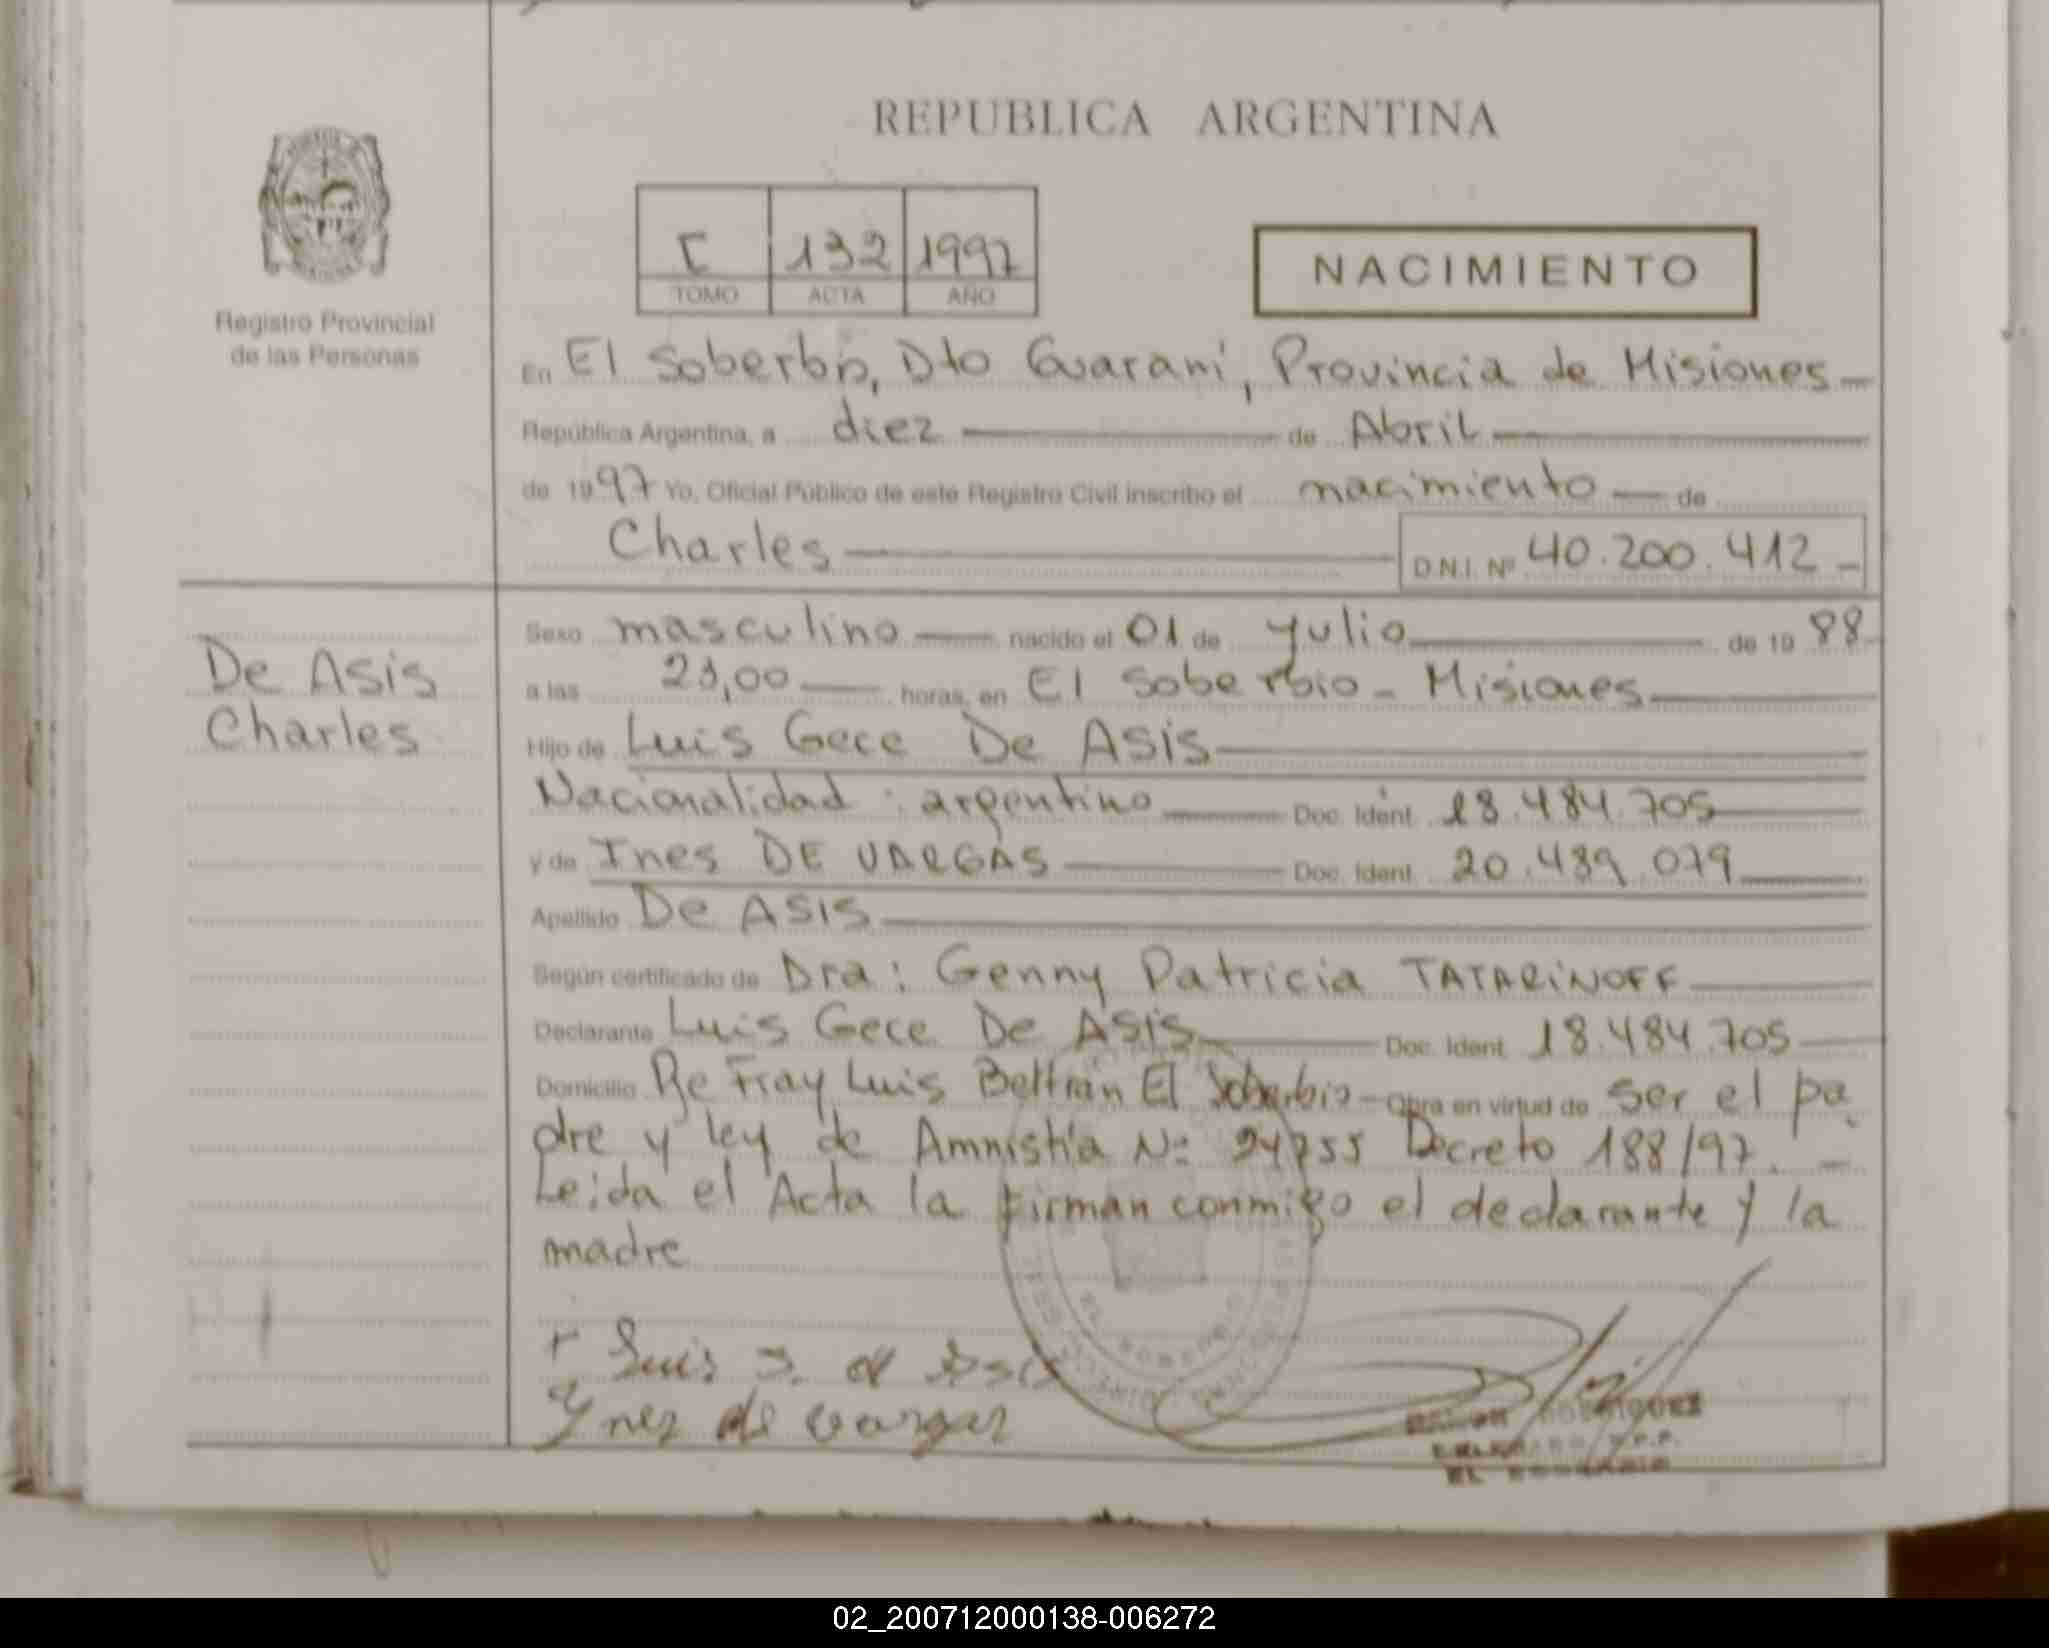 REPUBLICA ARGENTINA
I 132 1997
TOMO ACTA AÑO
NACIMIENTO
Registro Provincial
de las Personas
En El Soberbio, Dto Guarani, Provincia de Misiones
República Argentina, a diez de Abril
de 1997 Yo, Oficial Público de este Registro Civil inscribo el nacimiento de
Charles D.N.I. Nº 40.200.412
De Asis
Charles
Sexo masculino nacido el 01 de yulio de 19 88
a las horas, en El Soberbio - Misiones
Hijo de Luis Gece De Asis
Nacionalidad : argentino Doc. Ident. 18.484.705
y de Ines DE VARGAS Doc. Ident. 20.489.079
Apellido De ASIS
Según certificado de Dra: Genny Patricia TATARINOFF
Declarante Luis Gece De Asis Doc. Ident. 18.484.705
Domicilio Fray Luis Beltrán El Soberbio - Obra en virtud de ser el pa
dre y ley de Amnistía Nº 24755 Decreto 188/97. -
Leida el Acta la firman conmigo el declarante y la
madre
Luis
Ynez de vargas
EL SOBERBIO
02_200712000138-006272